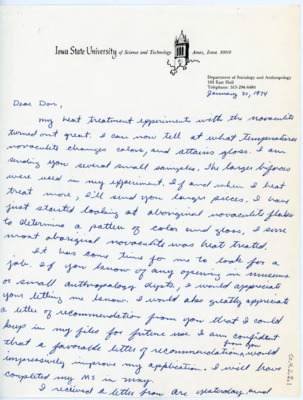 Iowa State University of Science and Technology Ames, Iowa 50010
Department of Sociology and Anthropology
103 East Hall
Telephone: 515-294-6480
January 30, 1974
Dear Don,
My heat treatment experiments with the novaculite
turned out great. I can now tell at what temperatures
novaculite changes colors, and attains gloss. I am
sending you several small samples. The larger bifaces
were used in my experiment. If and when I heat
treat more, I'll send you larger pieces. I have
just started looking at aboriginal novaculite flakes
to determine a pattern of color and gloss. I
most aboriginal novaculite was heat treated.
It has come time for me to look for a
job. If you know of any opening in museums
or small anthropology depts, I would appreciate
your letting me know. I would also greatly appreciate
a letter of recommendation from you that I could
keep in my files for future use. I am confident
that a favorable letter of recommendation from you would
impressively improve my application. I will have
completed my MS in May.
I received a letter from yesterday, and